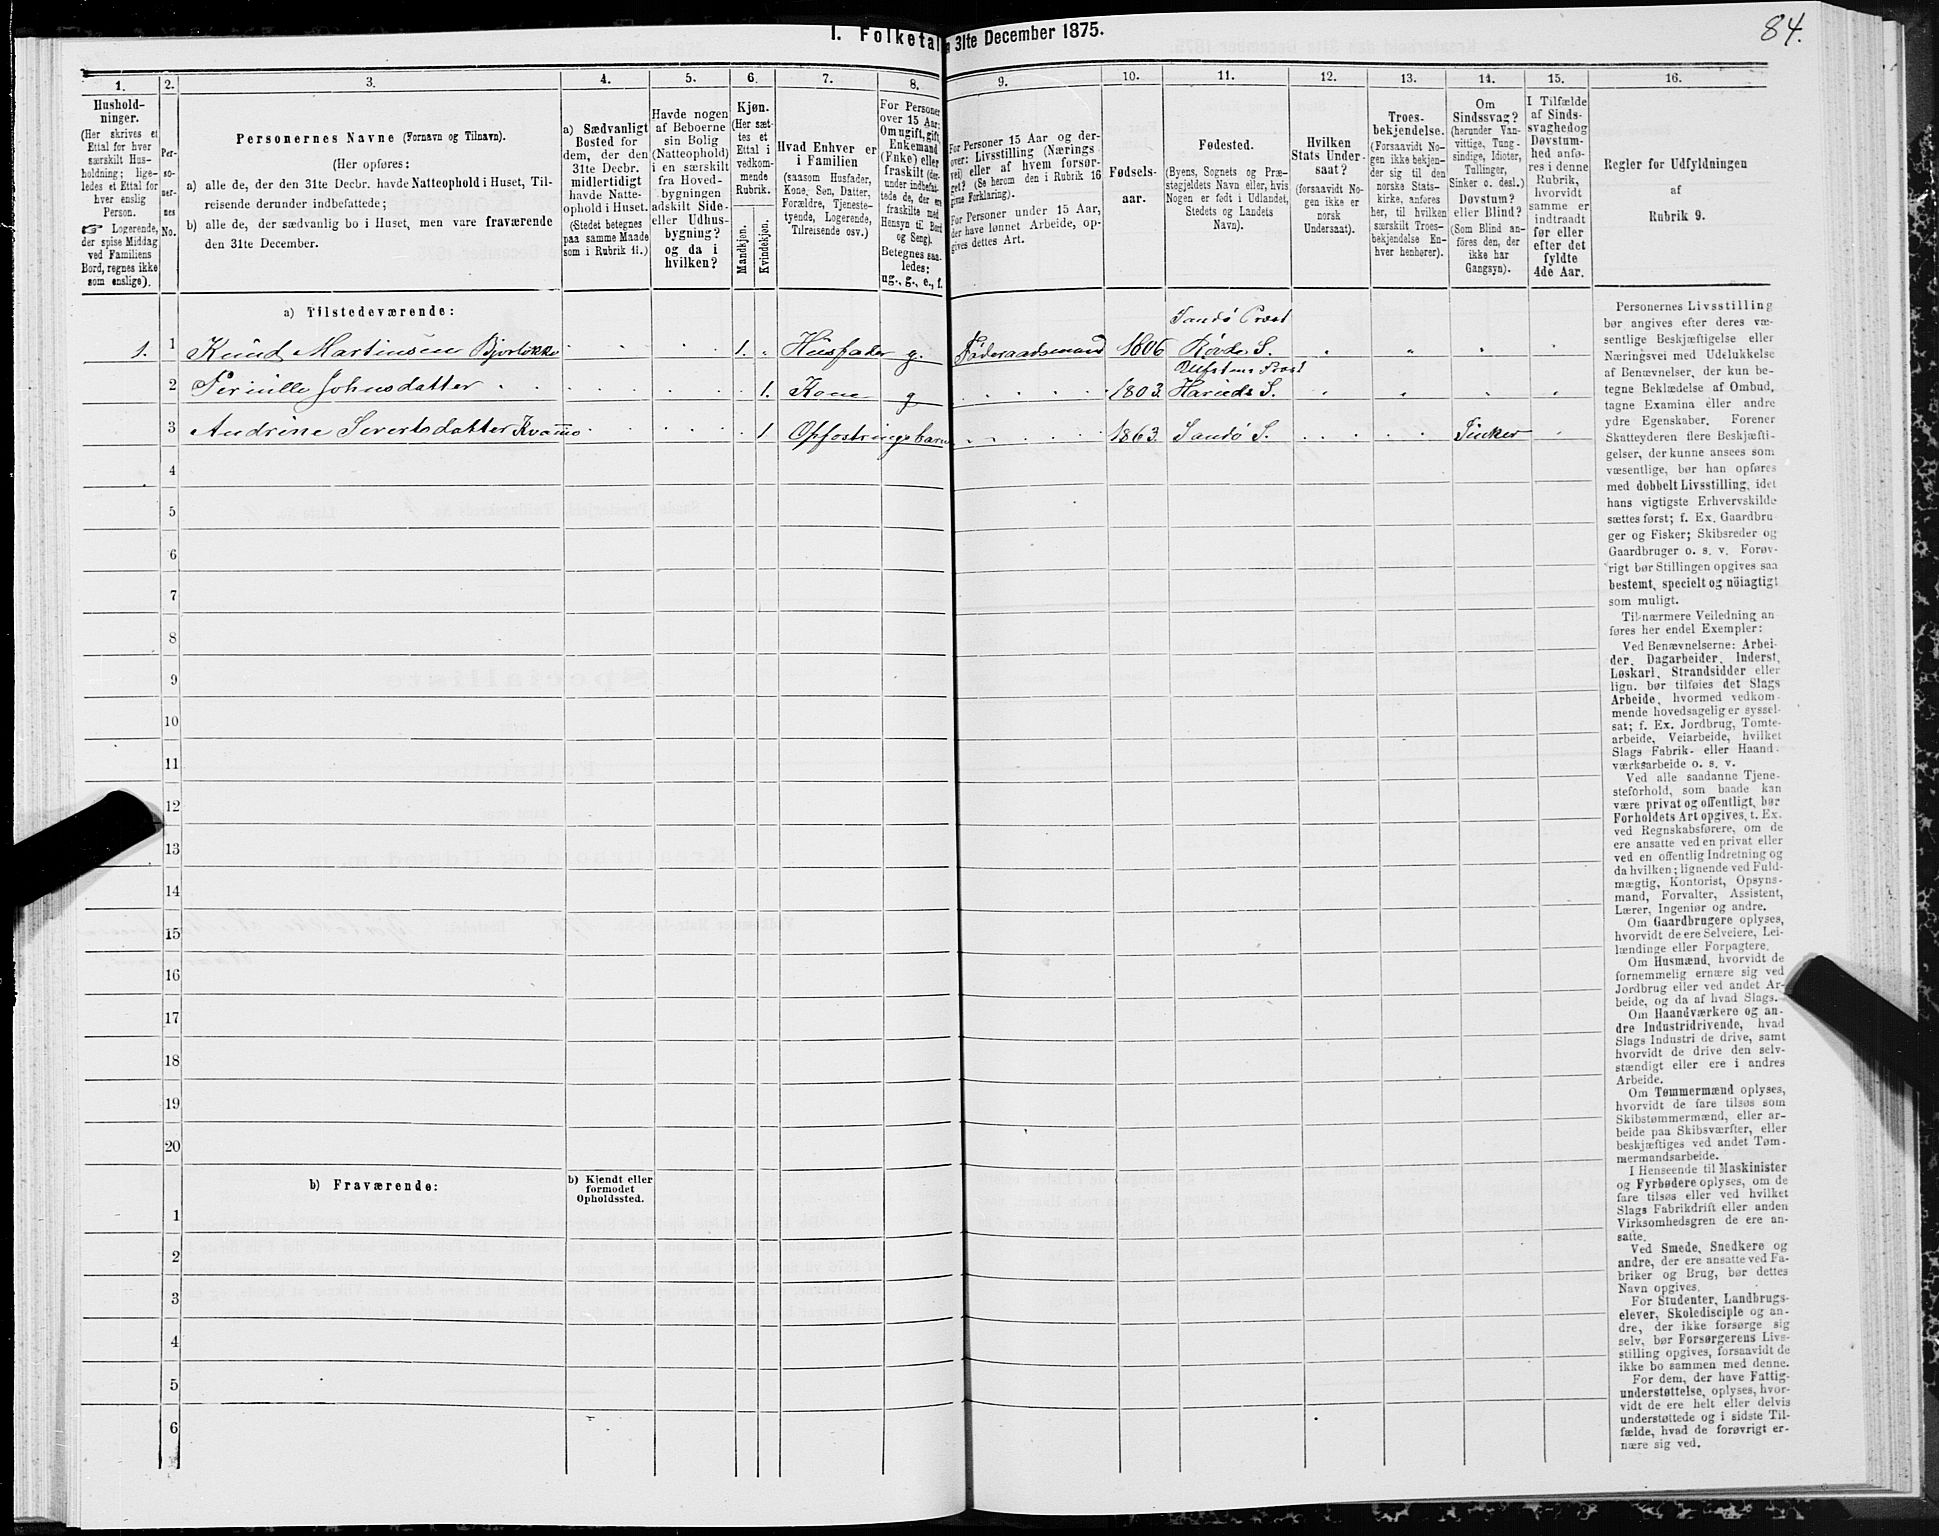 84.
I. Folketal
31te December 1875.
1.
2.
3.
4.
5.
6.
7.
8.
9.
10.
11.
12.
13.
14.
15.
16.
Hushold-
ninger.
(Her skrives et
Ettal for hver
særskilt Hus-
holdning; lige-
ledes et Ettal for
hver enslig
Person.
☞ Logerende,
der spise Middag
ved Familiens
Bord, regnes ikke
som enslige).
Per-
so-
ner-
nes
No.
Personernes Navne (Fornavn og Tilnavn).
(Her opføres:
a) alle de, der den 31te Decbr. havde Natteophold i Huset, Til-
reisende derunder indbefattede;
b) alle de, der sædvanlig bo i Huset, men vare fraværende
den 31te December.
a) Sædvanligt
Bosted for
dem, der den
31te Decbr.
midlertidigt
havde Natte-
ophold i Huset.
(Stedet betegnes
paa samme Maade
som i Rubrik 11.)
Havde nogen
af Beboerne
sin Bolig
(Natteophold)
i en særskilt
fra Hoved-
bygningen
adskilt Side-
eller Udhus-
bygning?
og da i
hvilken?
Kjøn.
(Her sæt-
tes et
Ettal i
vedkom-
mende
Rubrik.
Mandkjøn.
Kvindekjøn.
Hvad Enhver er
i Familien
(saasom Husfader,
Kone, Søn, Datter,
Forældre, Tjeneste-
tyende, Logerende,
Tilreisende osv.)
For Personer
over 15 Aar:
Om ugift, gift,
Enkemand
(Enke) eller
fraskilt (der-
under indbefat-
tede de, der ere
fraskilte med
Hensyn til Bord
og Seng).
Betegnes saa-
ledes:
ug., g., e., f.
For Personer 15 Aar og der-
over: Livsstilling (Nærings-
vei) eller af hvem forsør-
get? (Se herom den i Rubrik 16
givne Forklaring).
For Personer under 15 Aar,
der have lønnet Arbeide, op-
gives dettes Art.
Fødsels-
aar.
Fødested.
(Byens, Sognets og Præ-
stegjeldets Navn eller, hvis
Nogen er født i Udlandet,
Stedets og Landets
Navn).
Hvilken
Stats Under-
saat?
(forsaavidt No-
gen ikke er
norsk
Undersaat).
Troes-
bekjendelse.
(Forsaavidt No-
gen ikke bekjen-
der sig til den
norske Stats-
kirke, anføres
her, til hvilken
særskilt Troes-
bekjendelse En-
hver henhører).
Om
Sindssvag?
(herunder Van-
vittige, Tung-
sindige, Idioter,
Tullinger,
Sinker o. desl.)
Døvstum?
eller Blind?
(Som Blind an-
føres den, der
ikke har
Gangsyn).
I Tilfælde
af Sinds-
svaghed og
Døvstum-
hed anfø-
res i denne
Rubrik,
hvorvidt
samme er
indtraadt
før eller
efter det
fyldte
4de Aar.
Regler for Udfyldningen
af
Rubrik 9.
a) Tilstedeværende:
1. 1 Knud Martinsen Bjorløkke 1. Husfader g. Föderaadsmand 1806 Sandö Præst Rövde S.
2 Pernille Johnsdatter 1. Kone g 1803. Ulfsten Præst Hareids S.
3 Andrine Sivertsdatter Kvamo 1 Opfostringsbarn 1863. Sandö S. Sinker
4
5
6
7
8
9
10
11
12
13
14
15
16
17
18
19
20
b) Fraværende:
b) Kjendt eller
formodet
Opholdssted.
1
2
3
4
5
6
Personernes Livsstilling
bør angives efter deres væ-
sentlige Beskjæftigelse eller
Næringsvei med Udelukkelse
af Benævnelser, der kun be-
tegne Beklædelse af Ombud,
tagne Examina eller andre
ydre Egenskaber. Forener
Skatteyderen flere Beskjæfti-
gelser, der kunne ansees som
væsentlige, bør han opføres
med dobbelt Livsstilling, idet
hans vigtigste Erhvervskilde
sættes først; f. Ex. Gaardbru-
ger og Fisker; Skibsreder og
Gaardbruger o. s. v. Forøv-
rigt bør Stillingen opgives saa
bestemt, specielt og nöiagtigt
som muligt.
Til nærmere Veiledning an-
føres her endel Exempler:
Ved Benævnelserne: Arbei-
der, Dagarbeider, Inderst,
Løskarl, Strandsidder eller
lign. bør tilføies det Slags
Arbeide, hvormed vedkom-
mende hovedsagelig er syssel-
sat; f. Ex. Jordbrug, Tomte-
arbeide, Veiarbeide, hvilket
Slags Fabrik- eller Haand-
værksarbeide o. s. v.
Ved alle saadanne Tjene-
steforhold, som baade kan
være privat og offentligt, bør
Forholdets Art opgives, t. Ex.
ved Regnskabsførere, om de
ere ansatte ved en privat eller
ved en offentlig Indretning og
da hvilken; lignende ved Fuld-
mægtig, Kontorist, Opsyns-
mand, Forvalter, Assistent,
Lærer, Ingeniør og andre.
Om Gaardbrugere oplyses,
hvorvidt de ere Selveiere, Lei-
lændinge eller Forpagtere.
Om Husmænd, hvorvidt de
fornemmelig ernære sig ved
Jordbrug eller ved andet Ar-
beide, og da af hvad Slags.
Om Haandværkere og an-
dre Industridrivende, hvad
Slags Industri de drive, samt
hvorvidt de drive den selv-
stændigt eller ere i andres
Arbeide.
Om Tømmermænd oplyses,
hvorvidt de fare tilsøs som
Skibstømmermænd, eller ar-
beide paa Skibsværfter, eller
beskjæftiges ved andet Tøm-
mermandsarbeide.
I Henseende til Maskinister
og Fyrbødere oplyses, om de
fare tilsøs eller ved hvilket
Slags Fabrikdrift eller anden
Virksomhedsgren de ere an-
satte.
Ved Smede, Snedkere og
andre, der ere ansatte ved Fa-
briker og Brug, bør dettes
Navn opgives.
For Studenter, Landbrugs-
elever, Skoledisciple og an-
dre, der ikke forsørge sig
selv, bør Forsørgerens Livs-
stilling opgives, forsaavidt de
ikke bo sammen med denne.
For dem, der have Fattig-
understøttelse, oplyses, hvor-
vidt de ere helt eller delvis
understøttede og i sidste Til-
fælde, hvad de forøvrigt er-
nære sig ved.